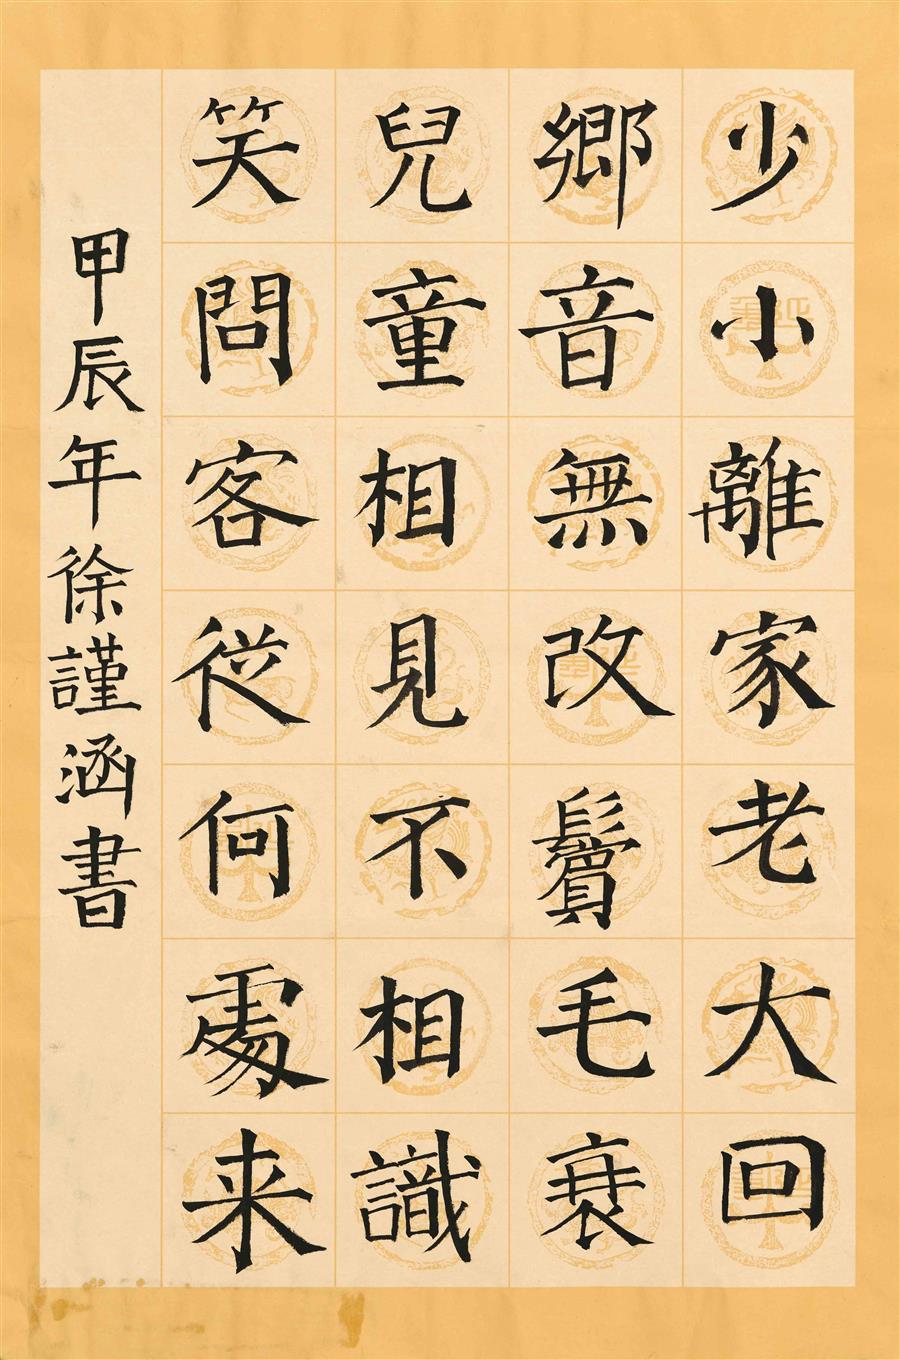 少小離家老大回
鄉音無改鬢毛衰
兒童相見不相識
笑問客從何處来
甲辰年徐謹涵書